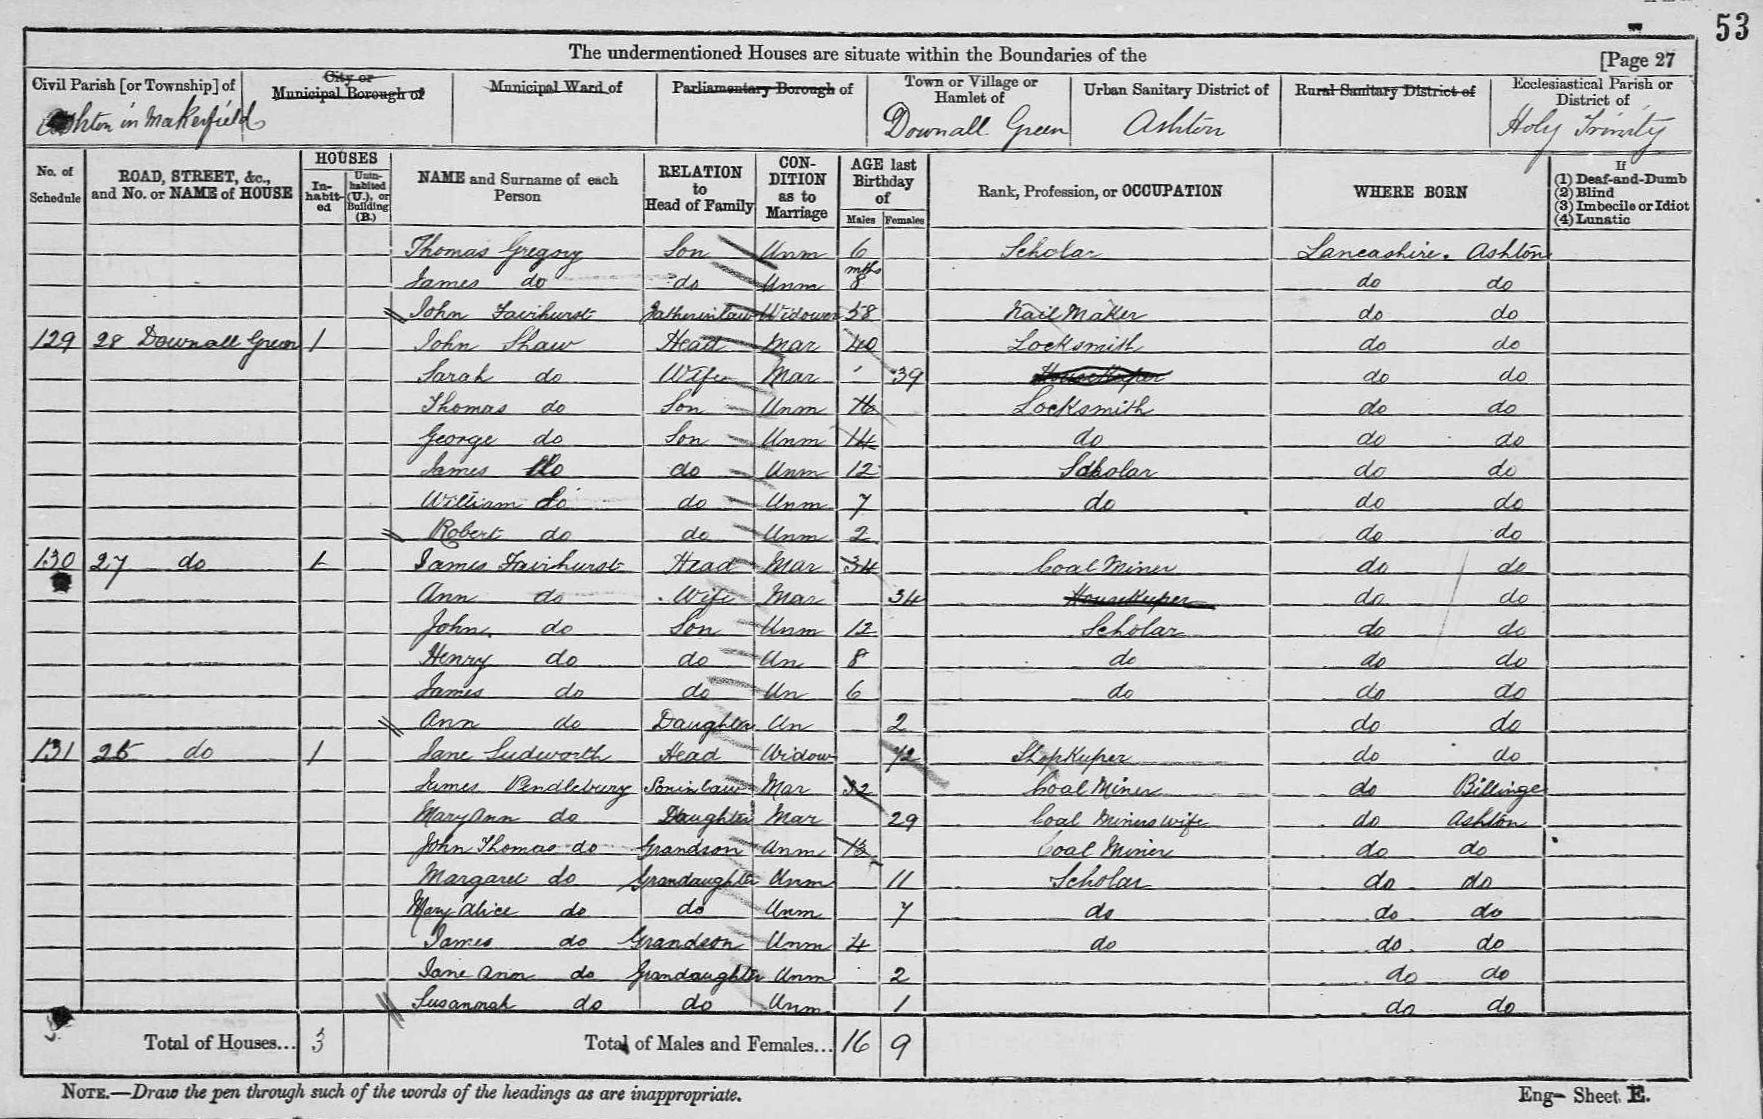 53
The undermentioned Houses are situate within the Boundaries of the
[Page 27
Civil Parish [or Township] of
City or Municipal Borough of
Municipal Ward of
Parliamentary Borough of
Town or Village or Hamlet of
Urban Sanitary District of
Rural Sanitary District of
Ecclesiastical Parish or District of
Ashton in Makerfield Downall Green Ashton Holy Trinity
No. of Schedule
ROAD, STREET, &c., and No. or NAME of HOUSE
HOUSES
In-habit-ed
Unin-habited (U.), or Building (B.)
NAME and Surname of each Person
RELATION to Head of Family
CON-DITION as to Marriage
AGE last Birthday of
Males Females
Rank, Profession, or OCCUPATION
WHERE BORN
If
(1) Deaf-and-Dumb
(2) Blind
(3) Imbecile or Idiot
(4) Lunatic
Thomas Gregory Son Unm 6 Scholar Lancashire. Ashton
James do do Unm 8 mths do do
John Fairhurst Fatherinlaw Widower 58 Nail Maker do do
129 28 Downall Green 1 John Shaw Head Mar 40 Locksmith do do
Sarah do Wife Mar 39 Housekeeper do do
Thomas do Son Unm 16 Locksmith do do
George do Son Unm 14 do do do
James do do Unm 12 Scholar do do
William do do Unm 7 do do do
Robert do do Unm 2 do do
130 27 do 1 James Fairhurst Head Mar 34 Coal Miner do do
Ann do Wife Mar 34 Housekeeper do do
John do Son Unm 12 Scholar do do
Henry do do Un 8 do do do
James do do Un 6 do do do
Ann do Daughter Un 2 do do
131 25 do 1 Jane Ludworth Head Widow 72 Shopkeeper do do
James Pendlebury Soninlaw Mar 32 Coal Miner do Billinge
Mary Ann do Daughter Mar 29 Coal Miners wife do Ashton
John Thomas do Grandson Unm Coal Miner do do
Margaret do Grandaughter Unm 11 Scholar do do
Mary Alice do do Unm 7 do do do
James do Grandson Unm 4 do do do
Jane Ann do Grandaughter Unm 2 do do
Susannah do do Unm 1 do do
Total of Houses... 3 Total of Males and Females... 16 9
NOTE.—Draw the pen through such of the words of the headings as are inappropriate.
Eng— Sheet E.